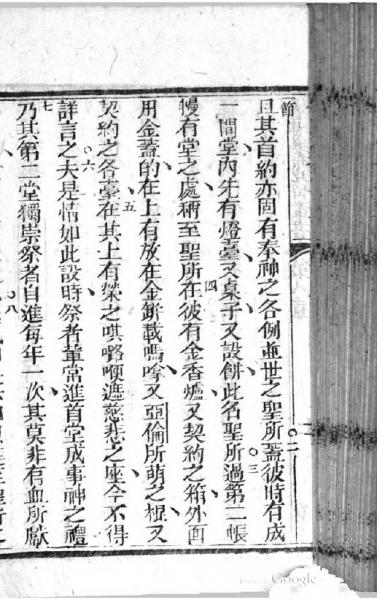 節
且其首約亦固有奉神之各例並世之聖所蓋彼時有成
一間堂內先有燈臺又桌子又設餅此名聖所過第二帳
幔有堂之處稱至聖所在彼有金香爐又契約之箱外面
用金蓋的在上有放在金缾載嗎嗱又亞倫所萌之棍又
契約之各臺在其上有榮之唭嚧𠸄遮慈悲之座今不得
詳言之夫是情如此設時祭者輩常進首堂成事神之禮
乃其第二堂獨崇祭者自進每年一次其莫非有血所獻
二
三
四
五
六
七
八
Google